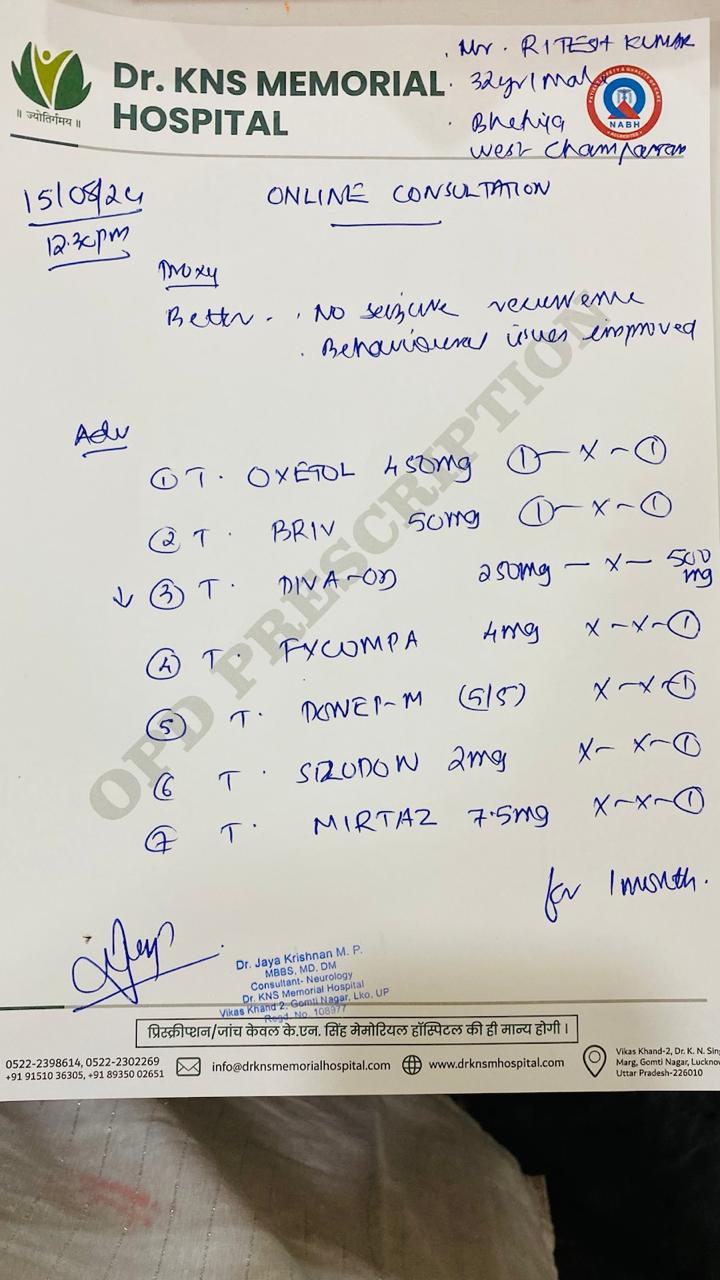 Mr. RITESH KUMAR
Dr. KNS MEMORIAL
HOSPITAL
॥ ज्योतिर्गमय ॥
32yr/Male
Bhehiya
West Champaran
NABH
15/08/24
12.30pm
ONLINE CONSULTATION
Proxy
Better - . No seizure recurrence
. Behavioural issues improved
OPD PRESCRIPTION
Adv
① T. OXETOL 450mg ①-x-①
② T. BRIV 50mg ①-x-①
↓ ③ T. DIVA-OD 250mg - x - 500 mg
④ T. FYCOMPA 4mg x-x-①
⑤ T. DONEP-M (5/5) x-x-①
⑥ T. SIZODON 2mg x-x-①
⑦ T. MIRTAZ 7.5mg x-x-①
for 1 month.
Dr. Jaya Krishnan M. P.
MBBS, MD, DM
Consultant- Neurology
Dr. KNS Memorial Hospital
Vikas Khand 2, Gomti Nagar, Lko, UP
Regd. No. 108977
प्रिस्क्रीप्शन/जांच केवल के.एन. सिंह मेमोरियल हॉस्पिटल की ही मान्य होगी ।
0522-2398614, 0522-2302269
+91 91510 36305, +91 89350 02651
info@drknsmemorialhospital.com
www.drknsmhospital.com
Vikas Khand-2, Dr. K. N. Sing
Marg, Gomti Nagar, Lucknow
Uttar Pradesh-226010